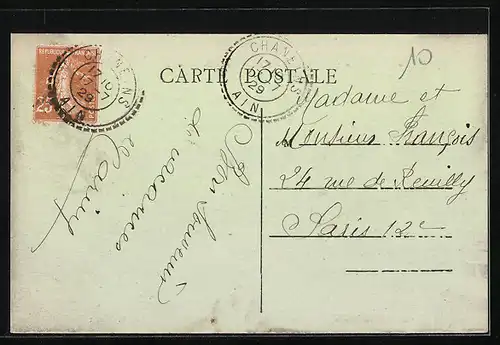 REPUBLIQUE FRANÇAISE
25
CHANEINS
17
17 - 7
29
AIN
CARTE POSTALE
CHANEINS
17
29
AIN
10
Madame et
Monsieur François
24 rue de Reuilly
Paris 12e
Bon Souvenir
de vacances